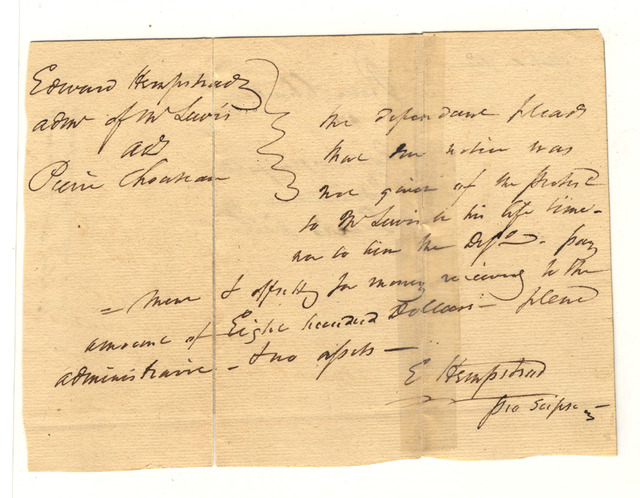 Edward Hempstead
admr of M Lewis
ads
Pierre Chouteau
the defendant pleads
that due notice was
not given of the protest
to M Lewis in his life time -
nor to him the Defdt - pay
= ment & offsett for money received to the
amount of Eight hundred Dollars - plene
administravit - & no assets -
E Hempstead
pro seipso